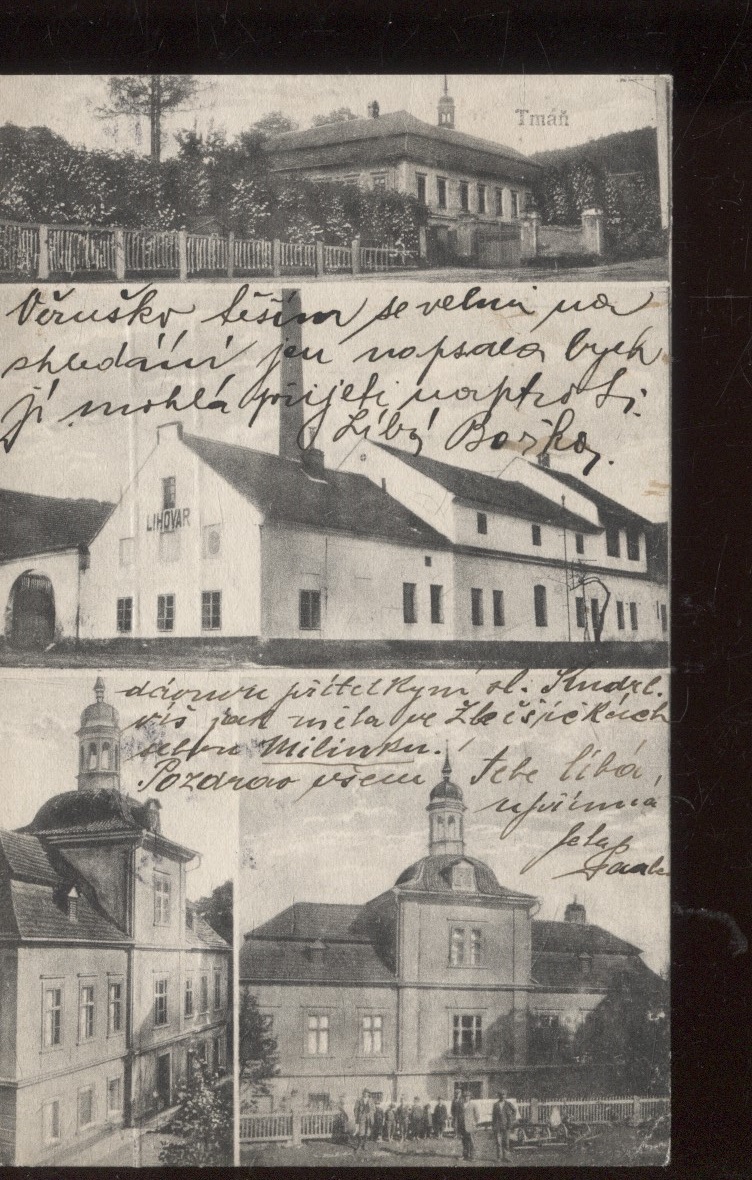 Tmáň
Věruško těším se velmi na
shledání jen napsala bych
jí mohla přijeti naproti.
Líbá Božka.
LIHOVAR
přítelkyni sl. Kudrl.
víš jak měla ve Zlešičkách
sebou Milinku.
Pozdrav všem Tebe líbá,
upřímná